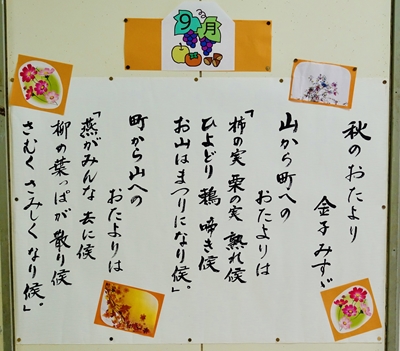 9月
秋のおたより
金子みすゞ
山から町への
おたよりは
「柿の実 栗の実 熟れ候
ひよどり 鶫 啼き候
お山はまつりになり候。
町から山への
おたよりは
「燕がみんな 去に候
柳の葉っぱが 散り候
さむく さみしく なり候。」